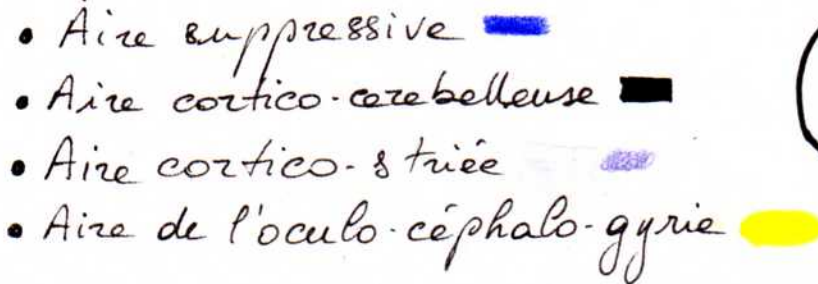 • Aire suppressive
• Aire cortico-cerebelleuse
• Aire cortico-striée
• Aire de l'oculo-céphalo-gyrie